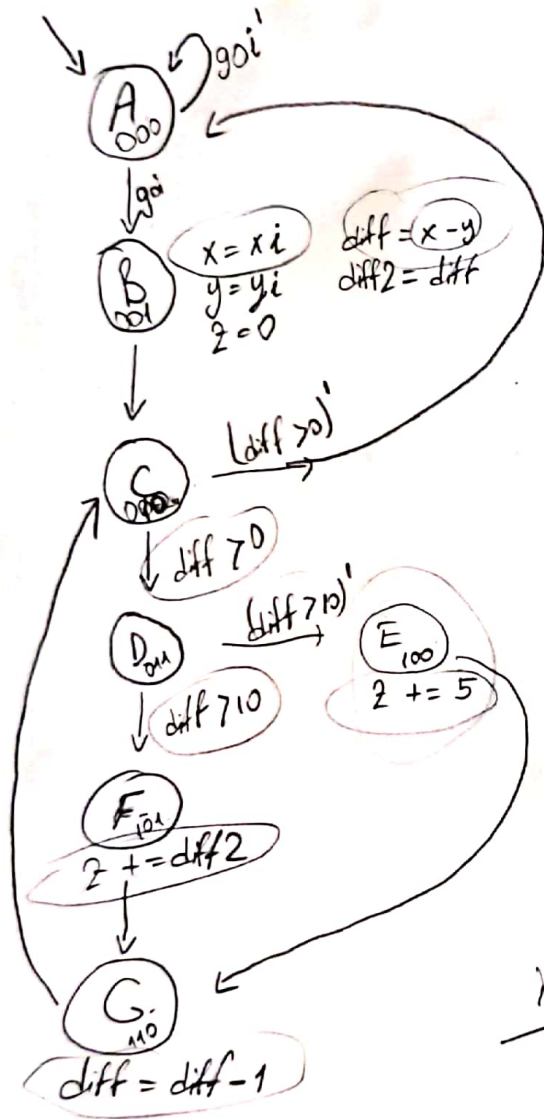 goi'
A
000
goi
B
001
x = xi
y = yi
z = 0
diff = x - y
diff2 = diff
C
(diff > 0)'
diff > 0
D
011
(diff > 10)'
E
100
z += 5
diff > 10
F
101
z += diff2
G
110
diff = diff - 1